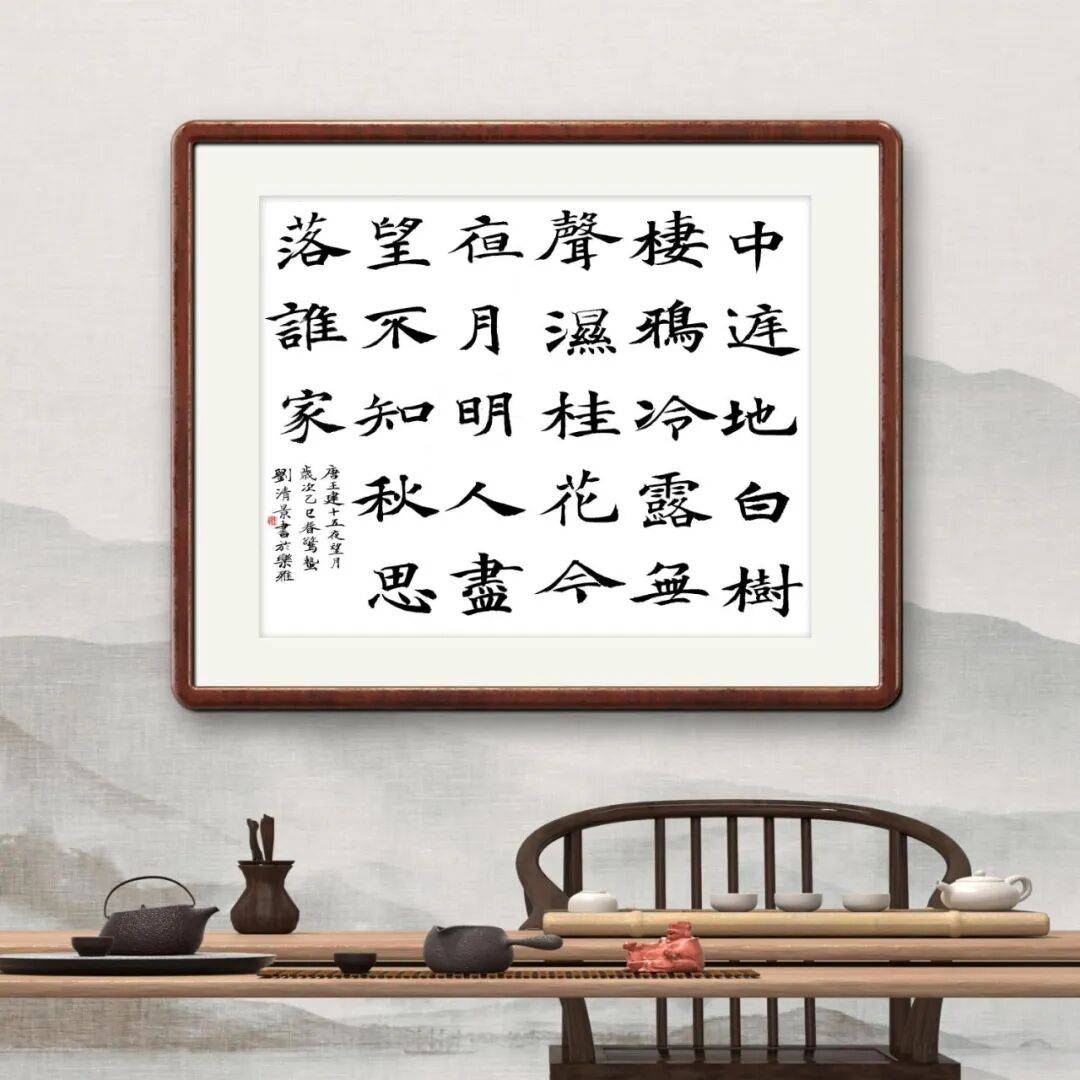 中庭地白樹
棲鴉冷露無
聲濕桂花今
亱月明人盡
望不知秋思
落誰家
唐王建十五夜望月
歲次乙巳春驚蟄
劉清景書於樂雅